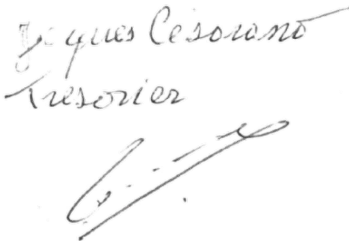 Jacques Césorano
Trésorier